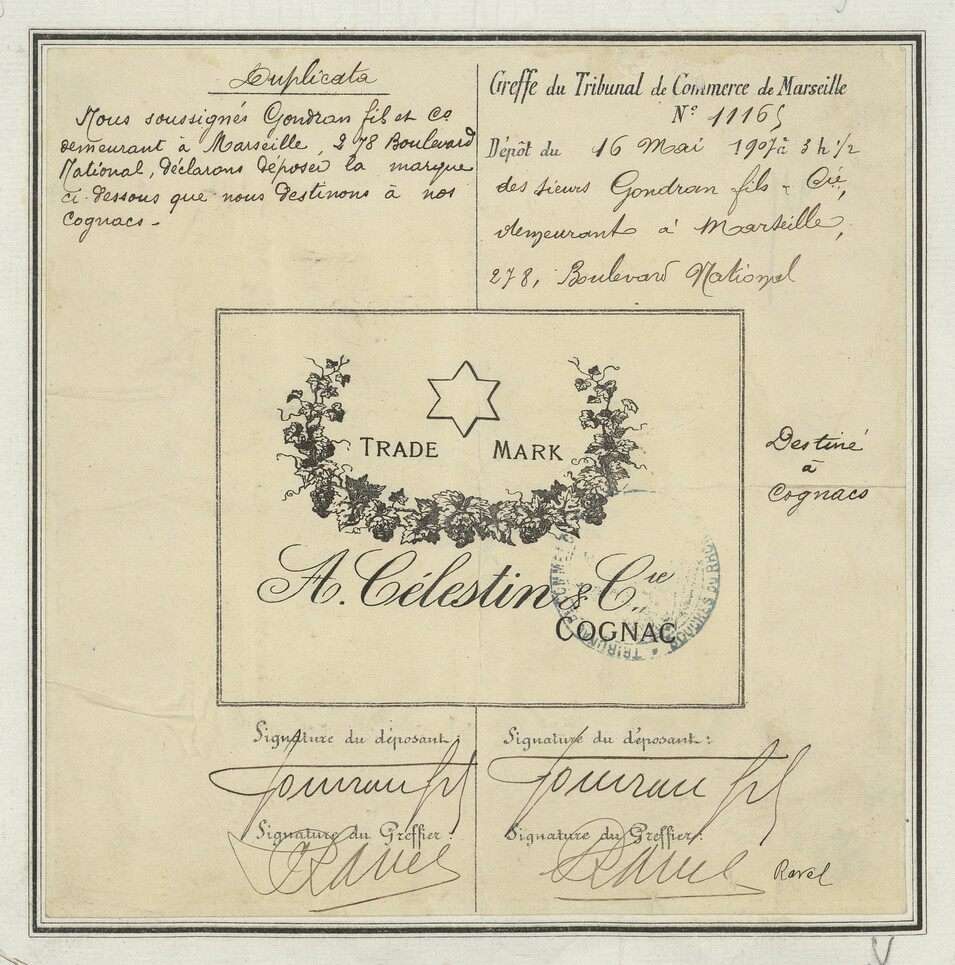 Duplicata
Nous soussignés Gondran fils et Co
demeurant à Marseille, 278 Boulevard
National, déclarons déposer la marque
ci-dessous que nous destinons à nos
Cognacs -
Greffe du Tribunal de Commerce de Marseille
N° 11165
Dépôt du 16 Mai 1907 à 3 h 1/2
des sieurs Gondran fils - Cie,
demeurant à Marseille,
278, Boulevard National
TRADE MARK
A. Célestin & Cie
COGNAC
TRIBUNAL DE COMMERCE
BOUCHES DU RHÔNE
Destiné
à
Cognacs
Signature du déposant:
Gondran fils
Signature du Greffier:
Ravel
Signature du déposant:
Gondran fils
Signature du Greffier:
Ravel
Ravel